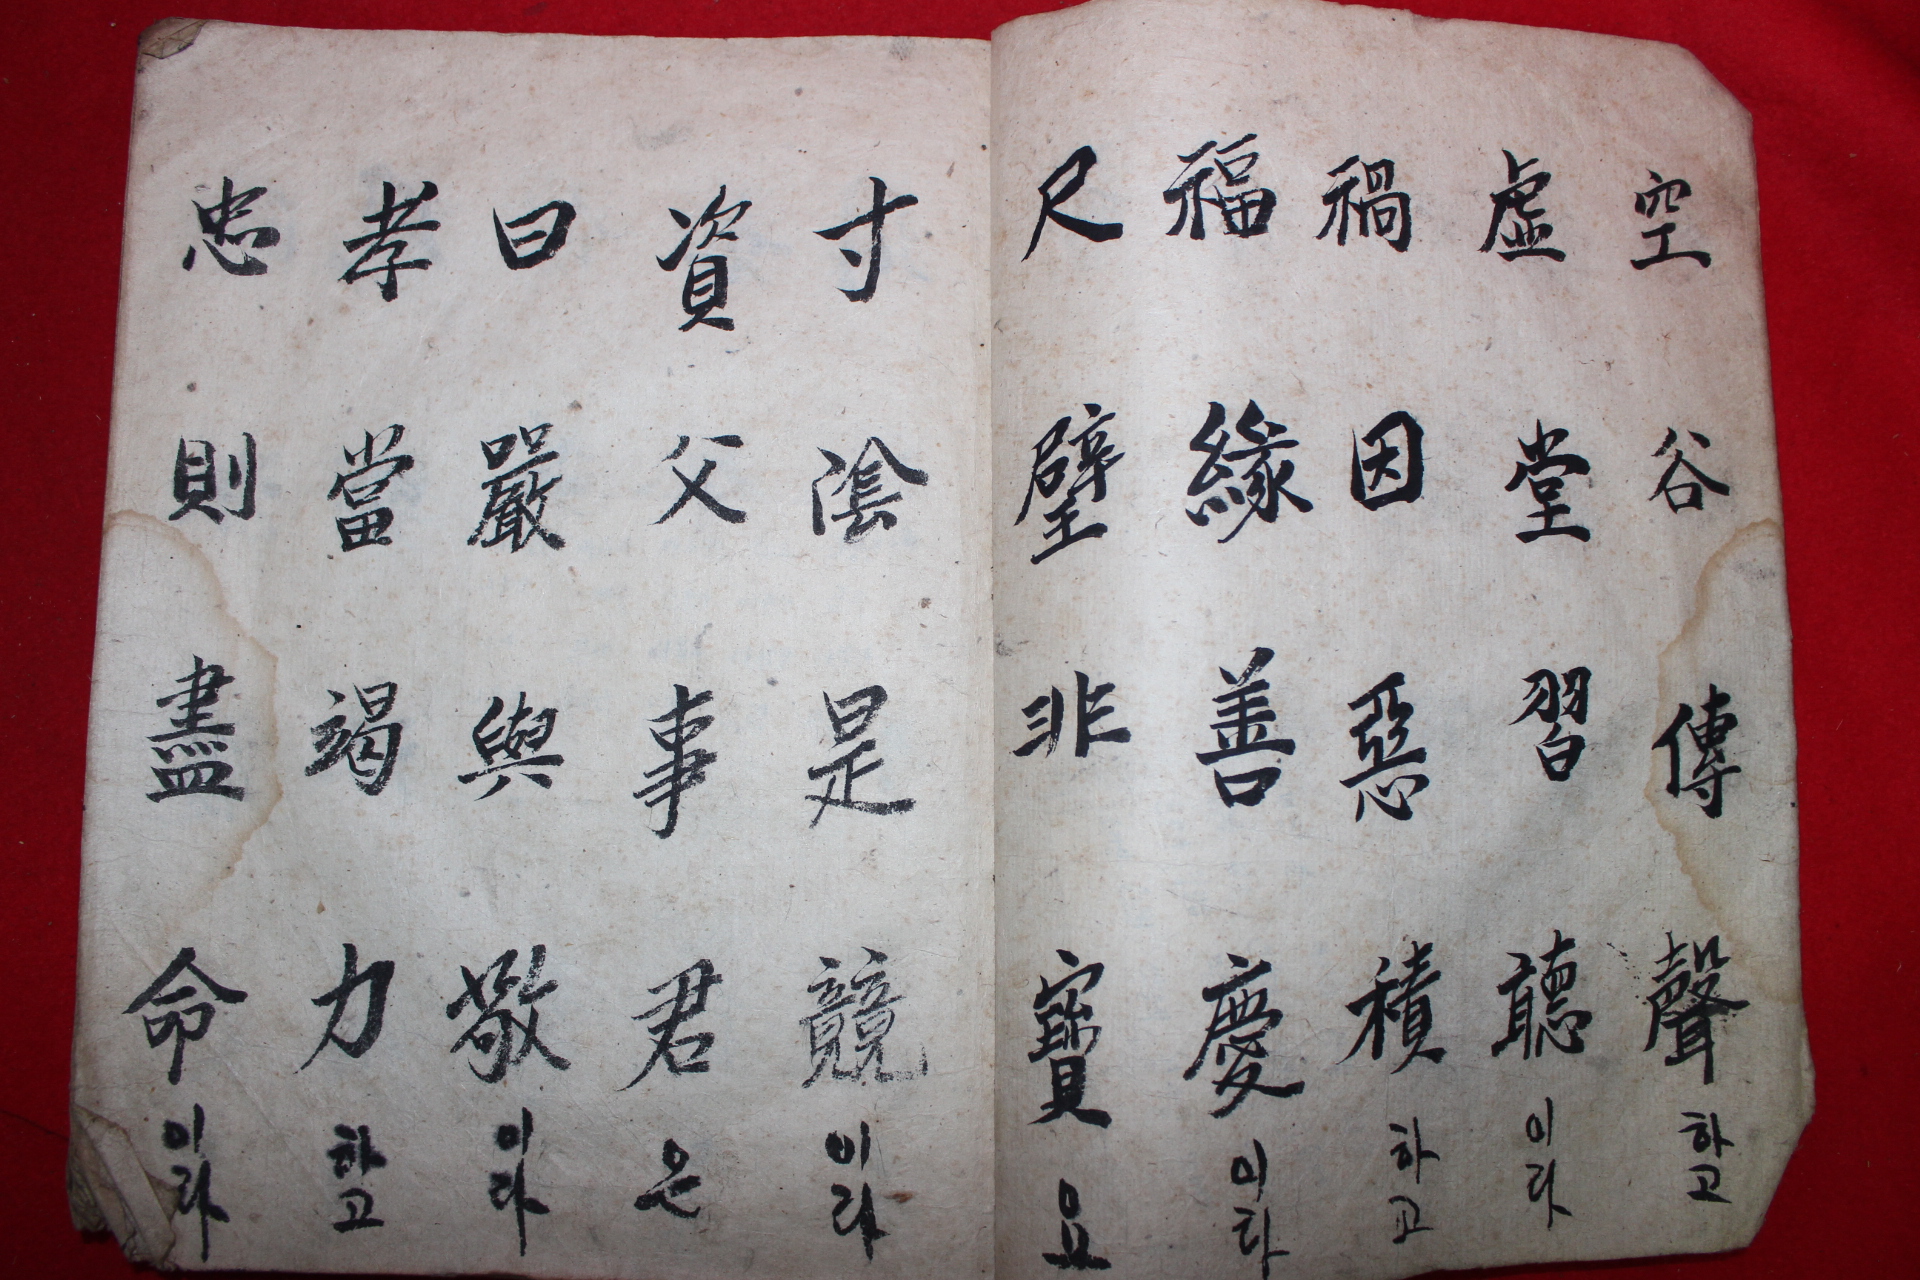 空谷傳聲하고
虛堂習聽이라
禍因惡積하고
福緣善慶이라
尺璧非寶요
寸陰是競이라
資父事君은
曰嚴與敬이라
孝當竭力하고
忠則盡命이라